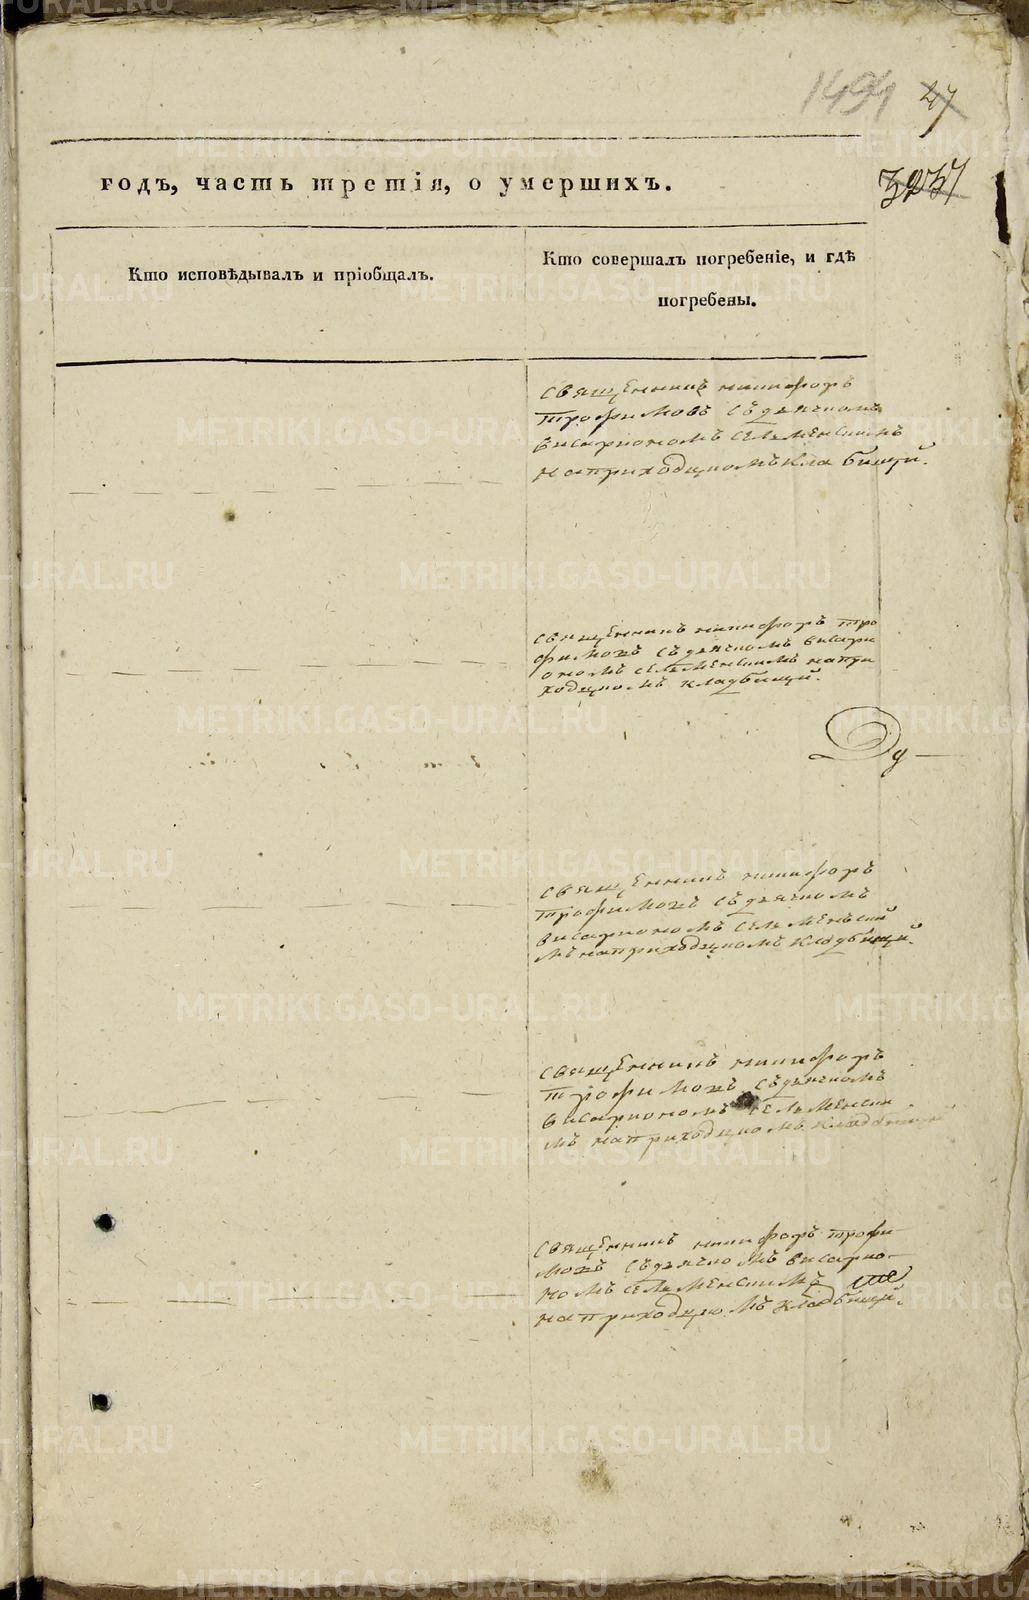 1494 27
3237
годъ, часть третія, о умершихъ.
Кто исповѣдывалъ и пріобщалъ.
Кто совершалъ погребеніе, и гдѣ
погребены.
священникъ никифоръ
трофимовъ съ дьячкомъ
висариономъ селеменскимъ
на приходцкомъ кладбищи.
священникъ никифоръ тро
фимовъ съ дьячкомъ висари
ономъ селеменскимъ на при
ходцкомъ кладбищи.
священникъ никифоръ
трофимовъ съ дьячкомъ
висариономъ селеменьски
мъ на приходцкомъ кладбищи.
священникъ никифоръ
трофимовъ съ дьячкомъ
висариономъ селеменски
мъ на приходцкомъ кладбищи
священникъ никифоръ трофи
мовъ съ дьячкомъ висарио
номъ селеменскимъ
на приходцкомъ кладбищи.
METRIKI.GASO-URAL.RU